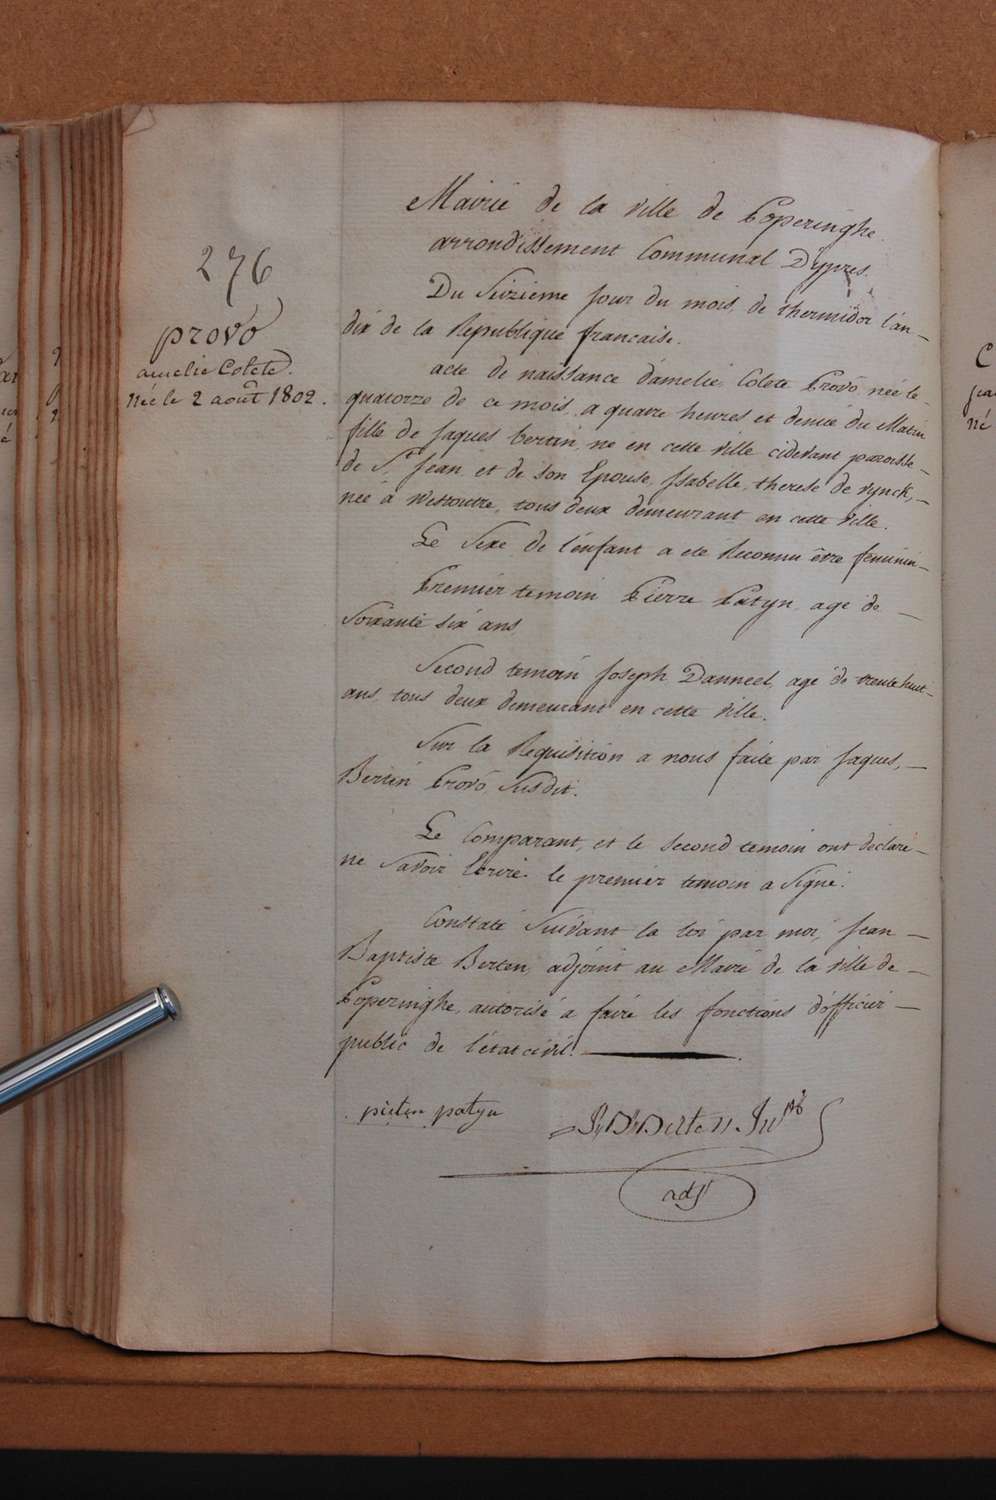 276
provô
amelie Colete.
né le 2 août 1802.
Mairie de la ville de Poperinghe
arrondissement Communal D'ypres.
Du Seizieme jour du mois de thermidor l'an
dix de la Republique francaise.
acte de naissance d'amelie Colete Provô, née le
quatorze de ce mois, a quatre heures et demie du Matin
fille de Jaques bertin, né en cette ville cidevant paroisse
de St Jean et de son Epouse, Isabelle, therese de vynck,
née à Westoutre, tous deux demeurant en cette ville.
Le Sexe de l'enfant a eté Reconnu être feminin
Premier temoin Pierre Patyn, agé de
Soixante six ans
Second temoin Joseph Danneel, agé de trente huit
ans, tous deux demeurant en cette ville.
Sur la Requisition a nous faite par Jaques,
Bertin Provô, Susdit.
Le Comparant, et le Second temoin ont déclaré
ne Savoir Ecrire. le premier temoin a Signé.
Constaté Suivant la loi par moi, Jean
Baptiste Berten, adjoint au Maire de la ville de
Poperinghe, autorisé à faire les fonctions d'officier
public de l'état civil.
pieter patyn
Berten
adjt